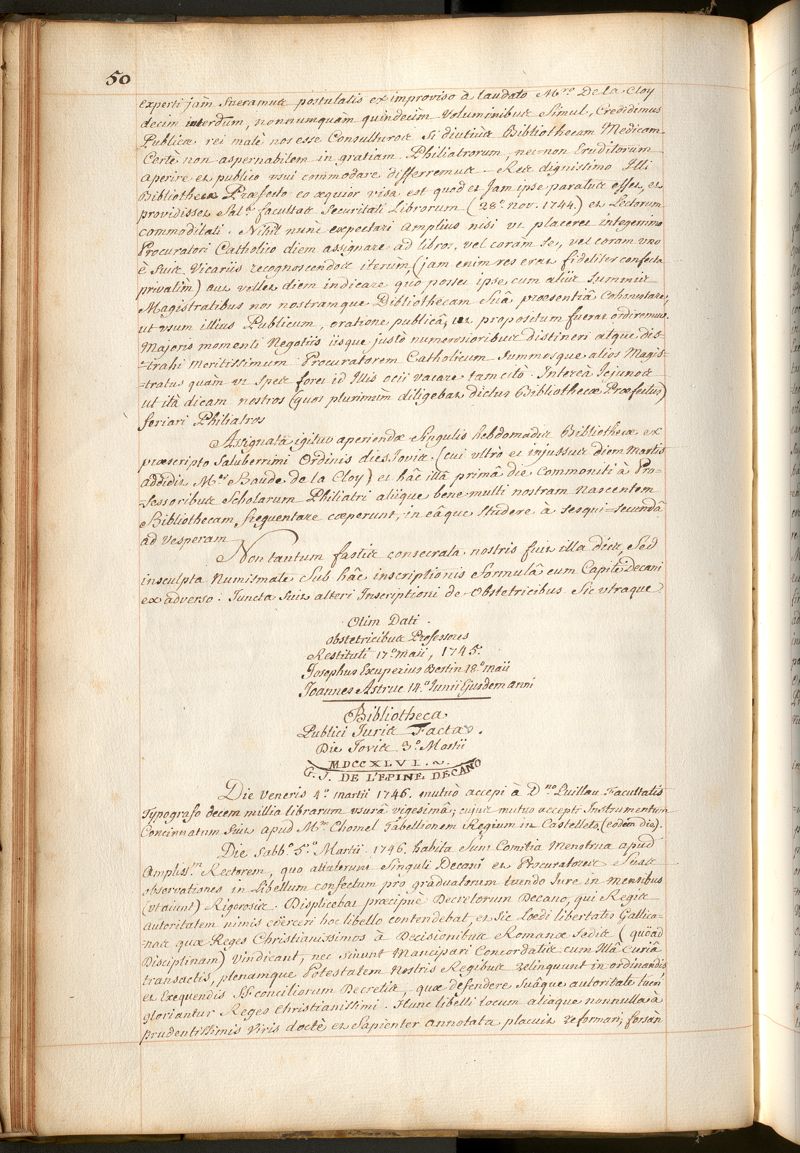 50
Experti jam fueramus postulatis ex improviso à laudato Mro. De la Cloy
decim interdum, nonnumquam quindecim voluminibus simul, Credidimus
Publicæ rei malè nos esse Consulturos si diutius Bibliothecam Medicam
Certè non aspernabilem in gratiam Philiatrorum, nec-non Eruditorum
aperire et publico usui commodare differremus. Res dignissimo Illi
Bibliothecæ Præfecto eo æquior visa est quod et Jam ipse paratus esset, et
providisset Sal. facultas Securitati Librorum (28.a nov. 1744.) et Lectorum
commoditati. Nihil nunc expectari amplius nisi ut placeret integerrimo
Procuratori Catholico diem assignare ad libros, vel coram se, vel coram uno
è suis Vicariis recognoscendos iterùm, (jam enim res erat fideliter confecta
privatìm) aut vellet diem indicare quo posset ipse cum aliis summis
Magistratibus nos nostramque Bibliothecam Suâ præsentiâ cohonestare,
ut usum illius Publicum, oratione publicâ, ut propositum fuerat ordiremus.
Majoris momenti Negotiis iisque justò numerosioribus distineri atque dis-
-trahi meritissimum Procuratorem Catholicum Summosque alios Magis-
-tratus quàm ut Spes foret id Illis otii vacare tam citò. Intereà Jejunos
ut ità dicam nostros (quos plurimùm diligebat dictus Bibliothecæ Præfectus)
feriari Philiatros
Assignatâ igitur aperiendæ Singulis hebdomadis Bibliothecæ ex
præscripto Saluberrimi Ordinis dies Jovis (cui ultrò et injussus diem Martis
addidit Mer. Baude de la Cloy) et hâc illâ primâ die Commoniti à Pro-
fessoribus Scholarum Philiatri aliique bene multi nostram Nascentem
Bibliothecam frequentare cœperunt, in eâque Studere à sesqui-secundâ
ad vesperam
Non tantum fastis consecrata nostris fuit illa dies, Sed
insculpta Numismate Sub hâc inscriptionis formulâ cum Capite Decani
ex adverso. Juncta fuit alteri Inscriptioni de Obstetricibus Sic utraque
Olim Dati
obstetricibus Professores
Restituti 17.a maii, 1745.
Josephus Exuperius Bertin 18.a maii
Joannes Astruc 14.a Junii Ejusdem anni
Bibliotheca
Publici Juris Facta
Die Jovis 3.a Martii
MDCCXLVI.
G. J. DE L'EPINE DECANO
Die Veneris 4.a martii 1746. mutuò accepi à D.no Quillau Facultatis
Typografo decem millia librarum usurâ vigesimâ; cujus mutuo accepti Instrumentum
Concinnatum fuit apud M.um Chomel Tabellionem Regium in Castelleto, (eodem die).
Die Sabb.o 5.a Martii 1746. habita Sunt Comitia Menstrua apud
Ampliss.m Rectorem, quo attulerunt Singuli Decani et Procuratores Suas
observationes in Libellum confectum pro graduatorum tuendo Jure in mensibus
(ut aiunt) Rigorosis. Displicebat præcipuè Decretorum Decano, qui Regis
autoritatem nimis coërceri hoc libello contendebat, et Sic Lædi libertates Gallica-
-nas quæ Reges Christianissimos à Decisionibus Romanæ Sedis (quòad
Disciplinam) vindicant, nec sinunt Mancipari Concordatis cum Illâ Curiâ
transactis, plenamque Potestatem Nostris Regibus relinquunt in ordinandis
et Exequendis SS. conciliorum Decretis, quæ defendere Suâque autoritate tueri
gloriantur Reges Christianissimi. Hunc libelli locum aliaque nonnulla à
prudentissimis Viris doctè et Sapienter annotata placuit reformari; forsàn